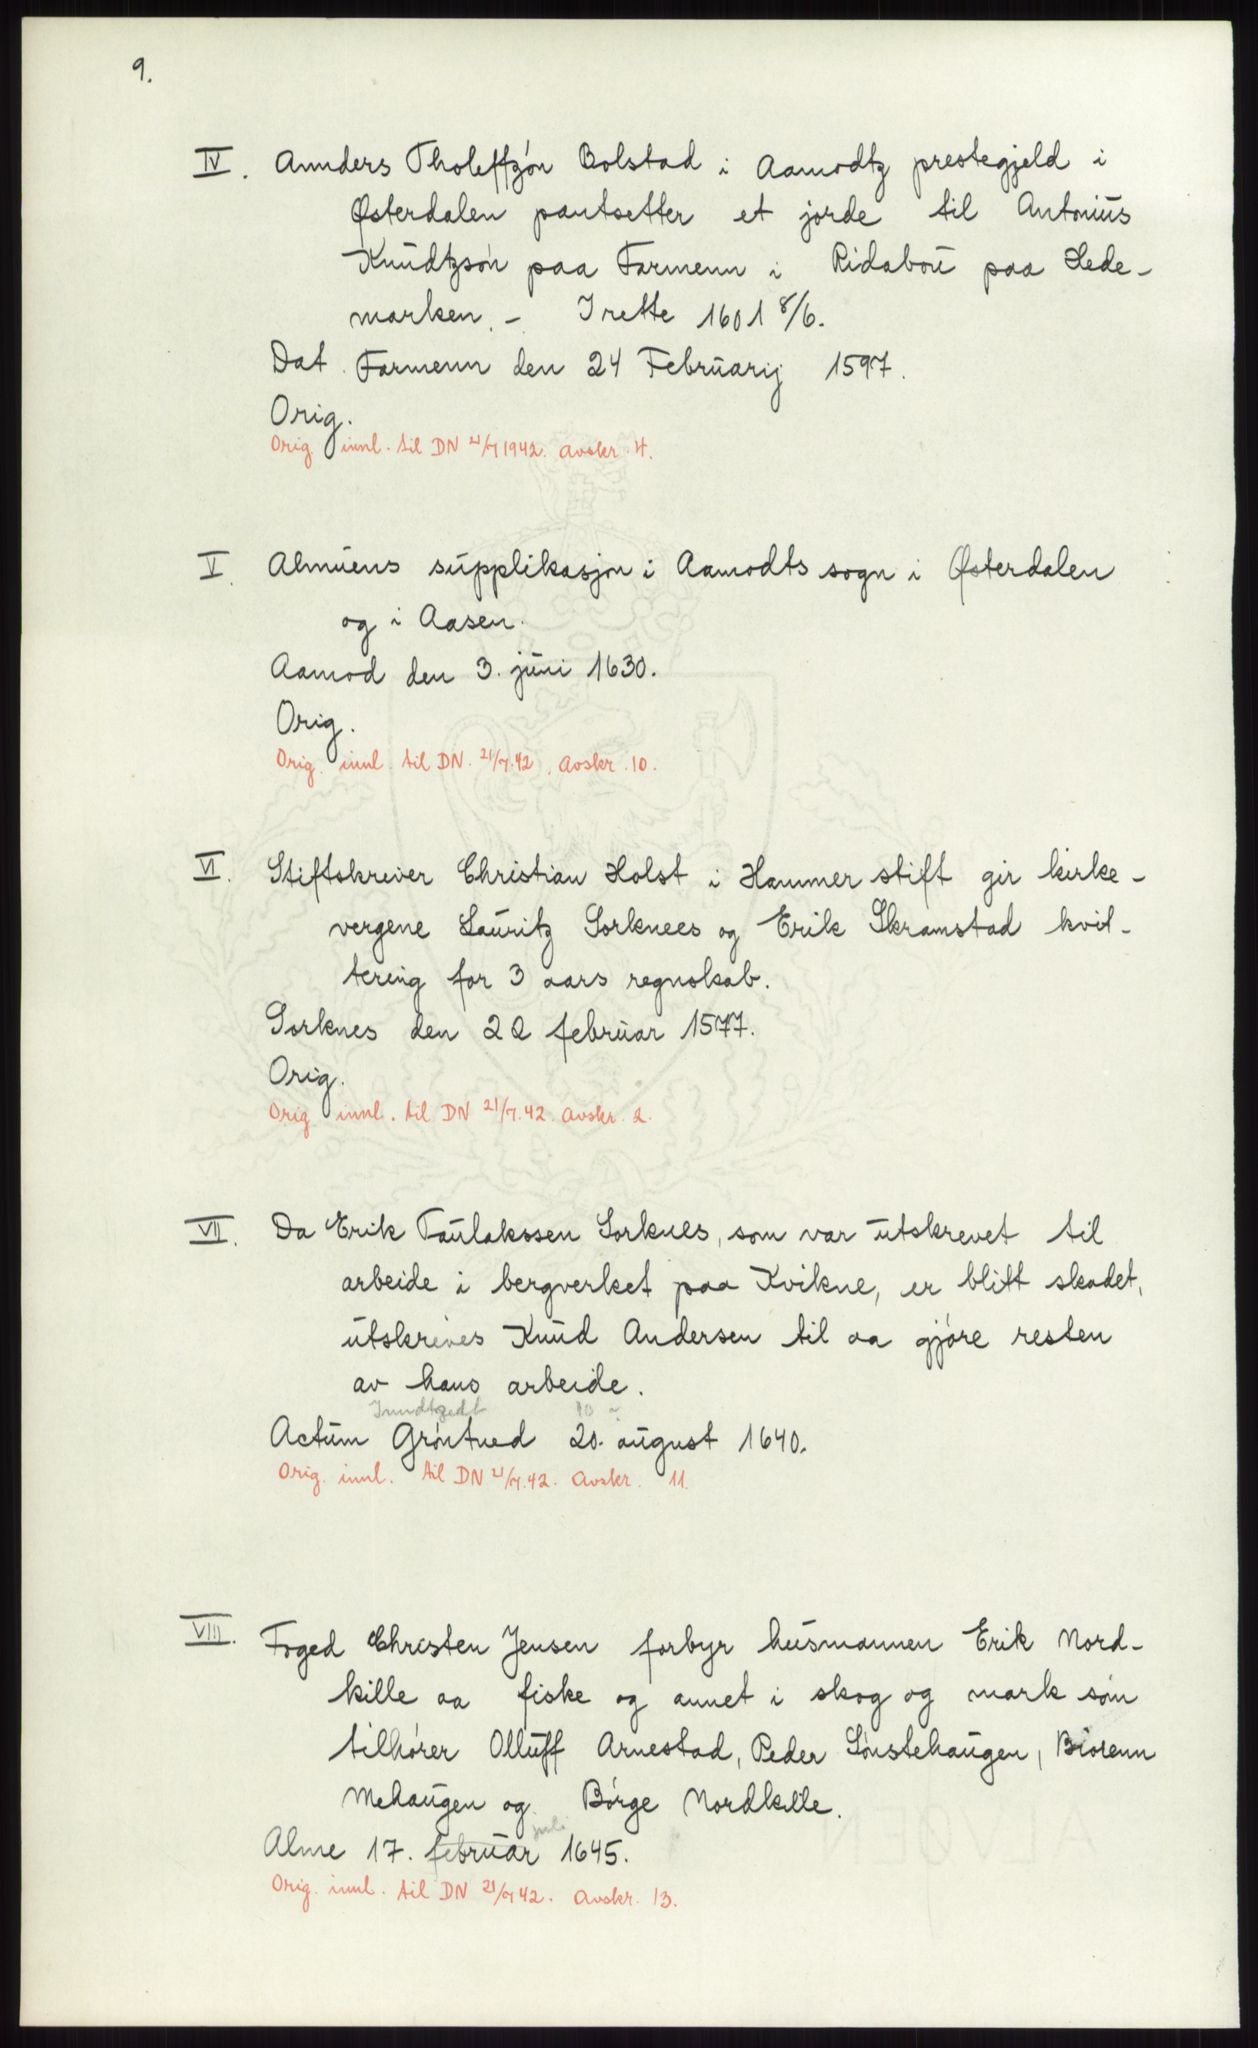 9.
IV. Annders Tholeffzøn Bolstad i Aamodtz prestegjeld i
Østerdalen pantsetter et jorde til Antonius
Knudtzsøn paa Farmenn i Ridabou paa Hede-
marken. - I rette 1601 8/6.
Dat. Farmenn den 24 Februarij 1597.
Orig.
Orig. innl. til DN 21/7 1942. Avskr. 4.
V. Almuens supplikasjon i Aamodts sogn i Østerdalen
og i Aasen.
Aamod den 3. juni 1630.
Orig.
Orig. innl. til DN. 21/7.42. Avskr. 10.
VI. Stiftskriver Christian Holst i Hammer stift gir kirke-
vergene Lauritz Sorknees og Erik Skramstad kvit-
tering for 3 aars regnskab.
Sorknes den 22 februar 1577.
Orig.
Orig. innl. til DN 21/7.42. Avskr. 2.
VII. Da Erik Taulakssen Sorknes, som var utskrevet til
arbeide i bergverket paa Kvikne, er blitt skadet,
utskrives Knud Andersen til aa gjøre resten
av hans arbeide.
10
Actum Grøntned 20. august 1640.
Orig. innl. til DN 21/7.42. Avskr. 11.
VIII. Foged Christen Jensen forbyr husmannen Erik Nord-
kille aa fiske og annet i skog og mark som
tilhører Olluff Arnestad, Peder Lønstehaugen, Biorenn
Mehaugen og Børge Nordkille.
juli
Alme 17. februar 1645.
Orig. innl. til DN 21/7 42. Avskr. 13.